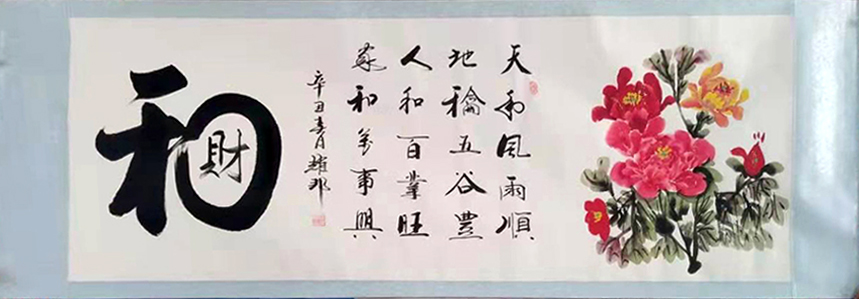 天和風雨順
地龢五谷豊
人和百業旺
家和萬事興
辛丑春月
和
財